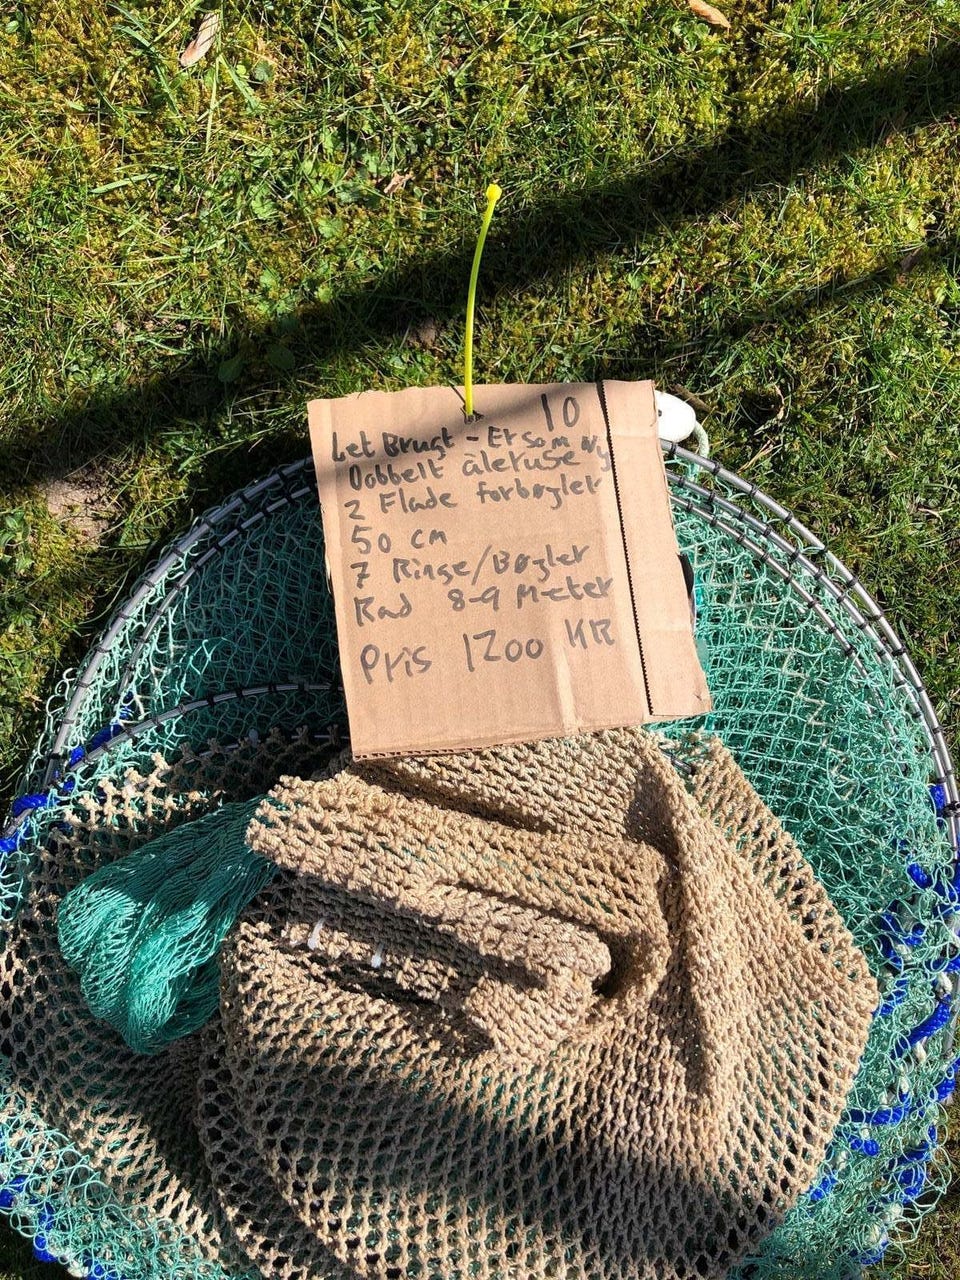 10
Let Brugt - Er som Ny
Dobbelt åleruse
2 Flade forbøgler
50 cm
7 Ringe/Bøgler
Rad 8-9 Meter
Pris 1200 KR